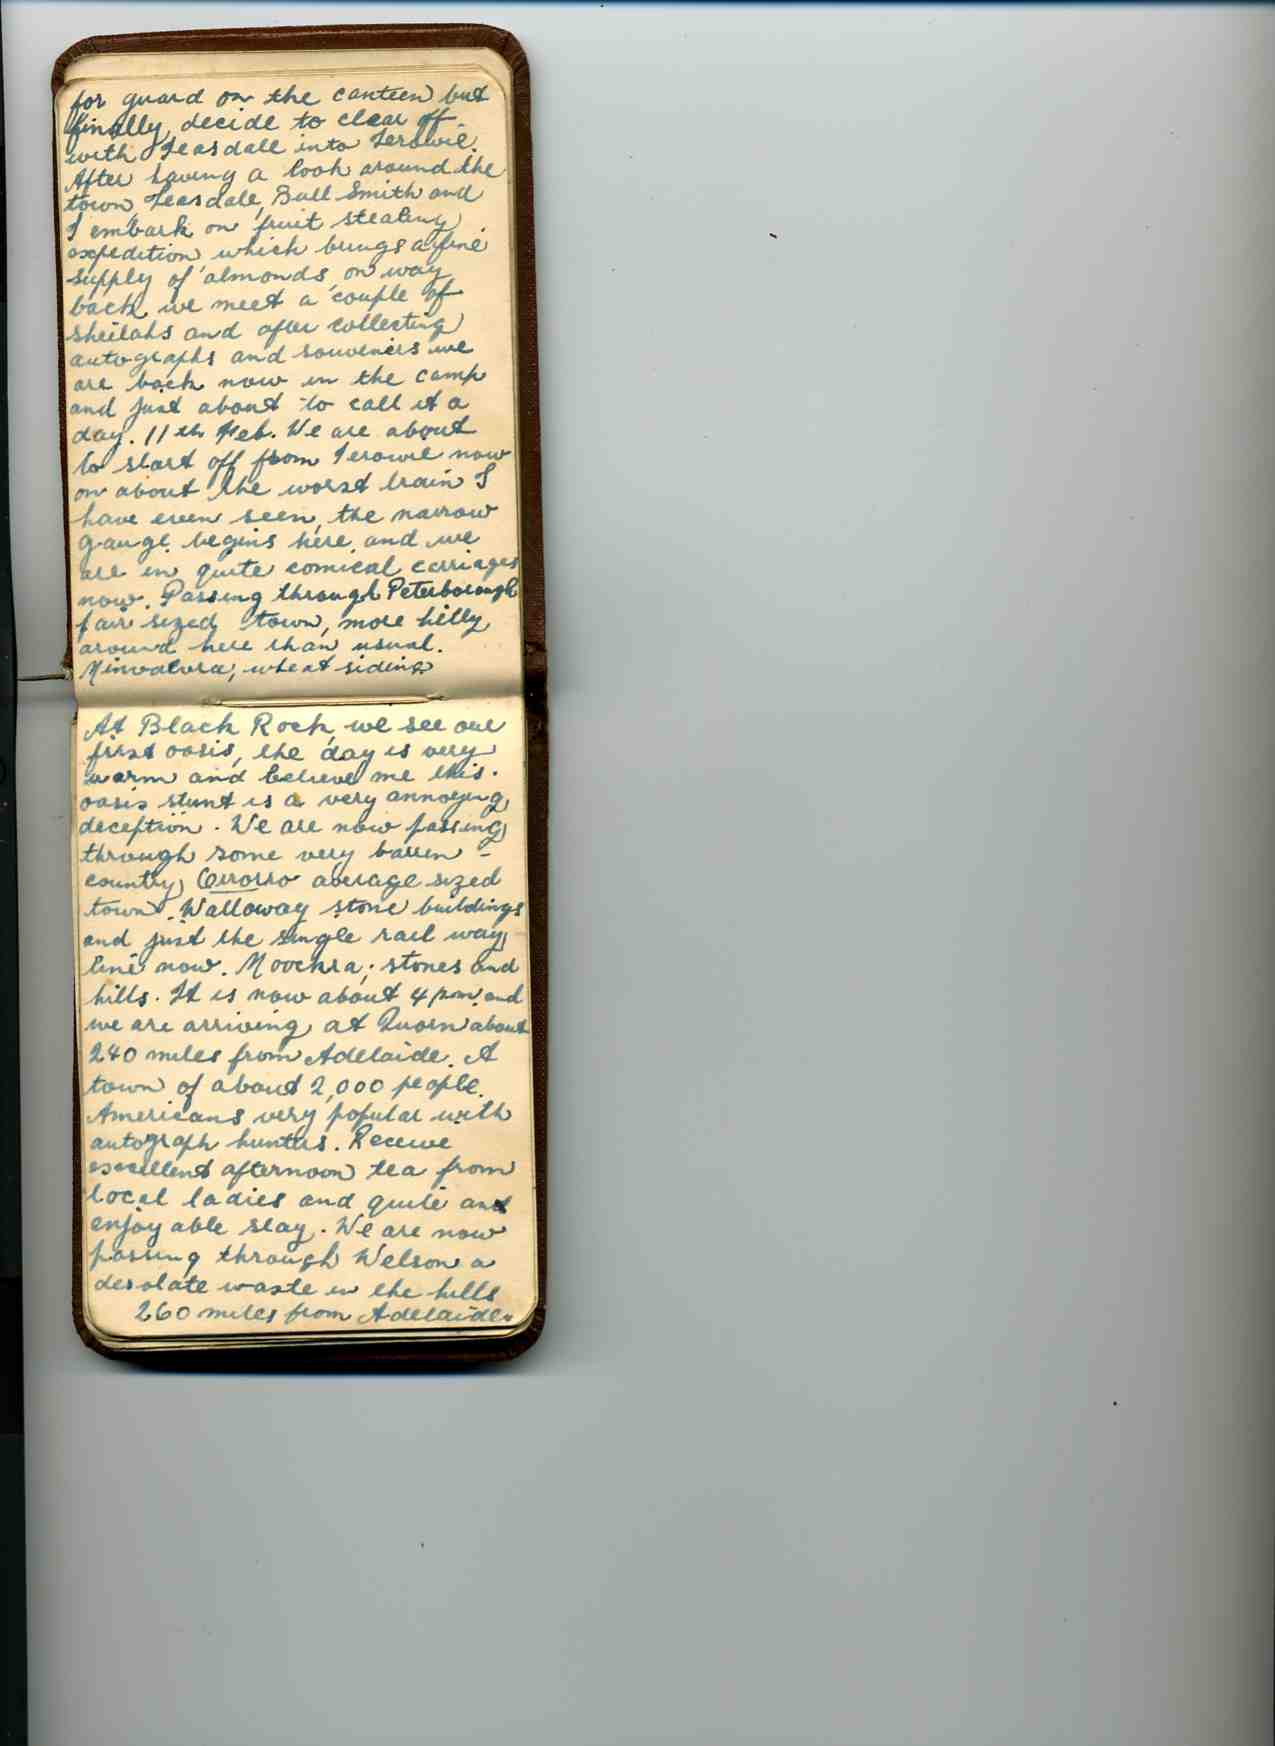 for guard on the canteen but
finally decide to clear off
with Teasdale into Terowie.
After having a look around the
town Teasdale, Bull Smith and
I embark on fruit stealing
expedition which brings a fine
supply of almonds, on way
back we meet a couple of
sheilahs and after collecting
autographs and souveniers we
are back now in the camp
and just about to call it a
day. 11th Feb. We are about
to start off from Terowie now
on about the worst train I
have even seen, the narrow
gauge begins here and we
are in quite comical carriages
now. Passing through Peterborough
fair sized town, more hilly
around here than usual.
Minvalara, wheat siding
At Black Rock, we see our
first oasis, the day is very
warm and believe me this
oasis stunt is a very annoying
deception. We are now passing
through some very barren
country, Orrorro average sized
town. Walloway stone buildings
and just the single rail way
line now. Moockra; stones and
hills. It is now about 4 p.m. and
we are arriving at Quorn about
240 miles from Adelaide. A
town of about 2,000 people.
Americans very popular with
autograph hunters. Receive
excellent afternoon tea from
local ladies and quite an
enjoyable stay. We are now
passing through Welson a
desolate waste in the hills
260 miles from Adelaide.